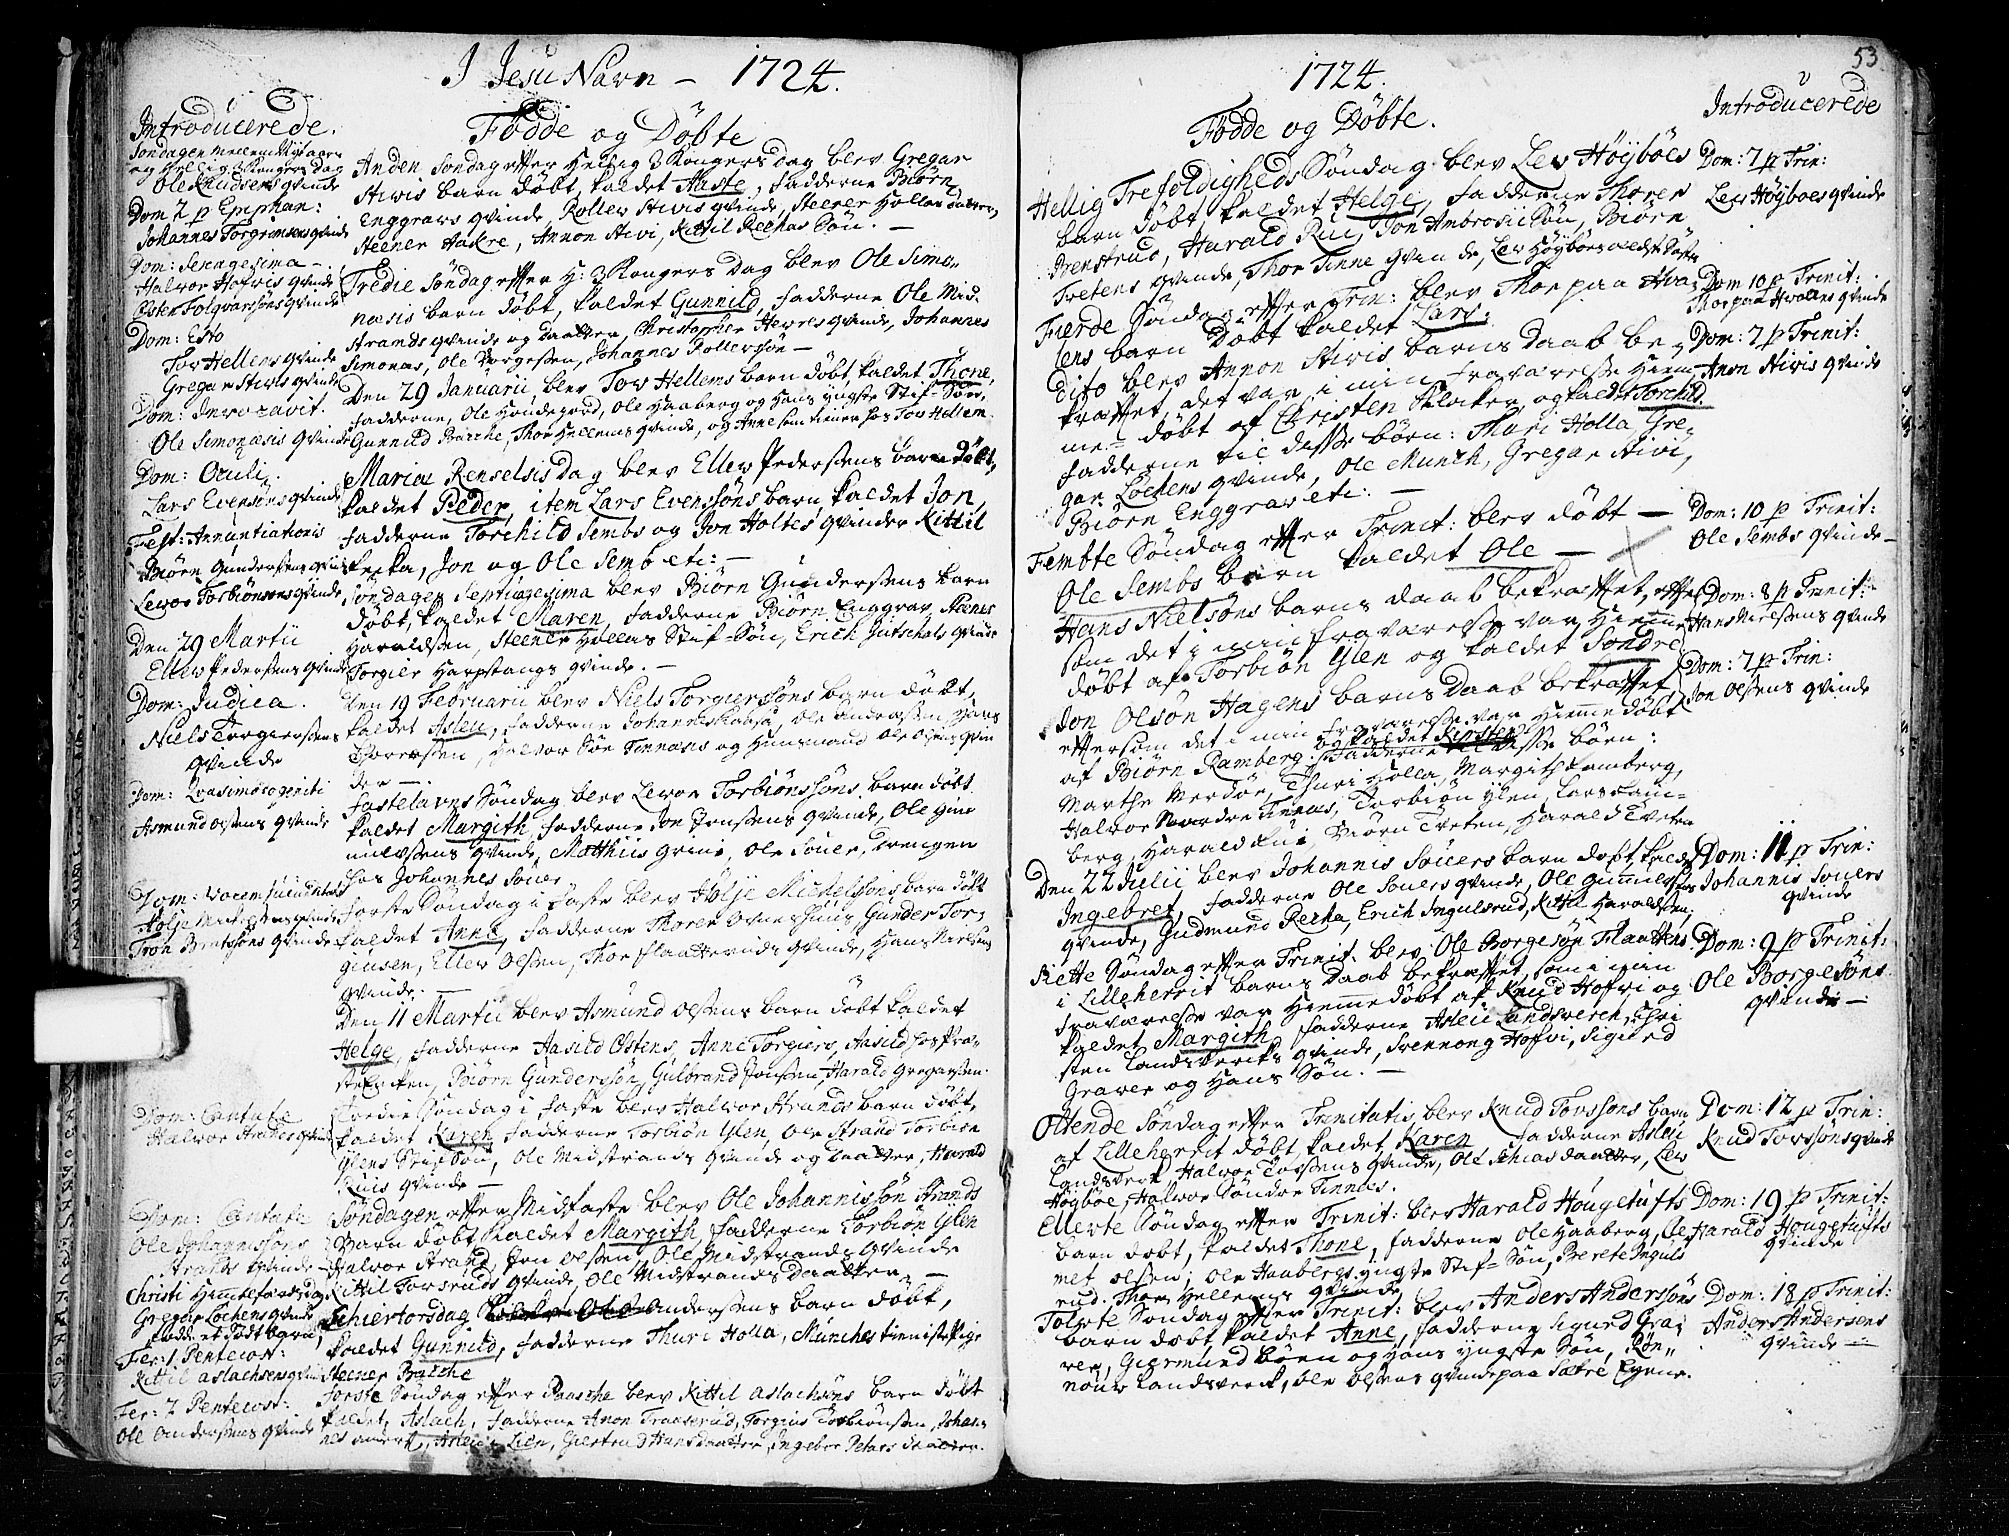 I Jesu Navn - 1724.
Introducerede.
Søndagen mellem Nyt aar
og Hellig 3 Kongers dag
Ole Knudsens qvinde
Dom 2 p Epiphan:
Johannes Torgrimsens qvinde
Dom: Sexagesima -
Halvor Hofvis qvinde
Østen Folqvarsøns qvinde
Dom: Esto
Tov Hellems qvinde
Gregar Stivis qvinde
Dom: Invocavit.
Ole Simonæsis qvinde
Dom: Oculi.
Lars Evensøns qvinde
Fest: Annuntiationis
Biørn Gundersens qvin
Levor Torbiønsøns qvinde
Den 29 Martii
Ellev Pedersens qvinde
Dom: Judica.
Niels Torgiersens
qvinde
Dom: Qvasimodogeniti
Asmund Olsens qvinde
Dom: Vocem Jucunditatis
Holje Michelsens qvinde
Tron Brutsøns qvinde
Dom: Cantate
Halvor Strands qvinde
Dom: Cantate
Ole Johannissøns
Strands qvinde -
Christi Himmelfartsdag
Gregar Lochens qvinde
født et dødt barn
Fer: 1 Pentecost:
Kittil Aslachsens qvinde
Fer: 2 Pentecost:
Ole Andersens qvinde
Fødde og Døbte
Anden Søndag effter Hellig 3 Kongers dag blev Gregar
Stivis barn døbt, kaldet Aaste, fadderne Biørn
Enggravs qvinde, Rollev Stivis qvinde, Steener Hollas datter,
Steener Aakre, Annon Stivi, Kittil Reehas Søn. -
Tredie Søndag effter H: 3 Kongers Dag blev Ole Simo-
næsis barn døbt, kaldet Gunnild, fadderne Ole Mid-
strands qvinde og daatter, Christopher Hevres qvinde, Johannes
Simonæs, Ole Børgessen, Johannes Rollefssøn -
Den 29 Januarii blev Tov Hellems barn døbt, kaldet Thone,
fadderne, Ole Hondegord, Ole Haaberg og Hans yngste Stif-Søn,
Gunnild Brache, Thor Hellems qvinde, og Anne som tiener hos Tov Hellem.
Mariæ Renselsis Dag blev Ellev Pedersens barn døbt,
kaldet Peder, item Lars Evensøns barn, kaldet Jon,
fadderne Torchild Sembs og Jon Holtes qvinder Kittil
Recka, Jon og Ole Semb etc: -
Søndagen Septuagesima blev Biørn Gundersens barn
døbt, kaldet Maren, fadderne Biørn Enggrav, Steener
Haraldsen, Steener Hollas Stif-Søn, Erich Jutschals qvinde
Torgier Harpstangs qvinde. -
Den 19 Februarii blev Niels Torgiersøns barn døbt,
kaldet Aslou, fadderne Johannis, Ole Andersen, Hans
Thoresen, Helvor Søe Tinnæs og Huusmand Ole Olsens qvin
de -
Fastelavns Søndag blev Levor Torbiønssøns barn døbt
kaldet Margith, fadderne Jon Jonssens qvinde, Ole Gun
nulfsens qvinde, Matthiis Grini, Ole Souer, Drengen
hos Johannes Souer
Første Søndag i Faste blev Holje Michelsøns barn døbt
kaldet Anne, fadderne Thorer Huus, Gunder Tor-
giusen, Ellev Olsen, Thor Flaatteruds qvinde, Hans Nielsens
qvinde. -
Den 11 Martii blev Asmund Olsens barn døbt kaldet
Helge, fadderne Aasild Østens, Anne Torgiers, Aasild hos Pro-
sten, Biørn Gundersøn, Gulbrand Jonsen, Harald Gregarsen.
Tredie Søndag i Faste blev Halvor Strands barn døbt,
kaldet Karen, fadderne Torbiøn Glen, Ole Strand Torbiøn
Glens Stif Søn, Ole Midstrands qvinde og daatter, Harald
Ruis qvinde -
Søndagen effter Midfaste blev Ole Johannissøn Strands
Barn døbt, kaldet Margith, fadderne Torbiøn Glen
Halvor Strand, Jon Olsen, Ole Midstrands qvinde
Kittil Torsruds qvinde, Ole Midstrands Daatter -
Schiertorsdag Andersens barn døbt,
kaldet Gunnild, fadderne Thuri Holla, Munches tienistepige
Steener Brache
Første Søndag effter Paasche blev Kittil Aslachsøns barn døbt
kaldet Aslach, fadderne Anon Traaserud, Torgius Torbiønssen, Johan-
nes, Lien, Giertrud Hansdaatter, Ingebor Petersdaatter.
53
1724.
Fødde og Døbte.
Hellig Trefoldigheds Søndag blev Lev Høybøes
barn døbt, kaldet Helge, fadderne Thorer
Prenstrud, Harald Rui, Jon Ambrosii Søn, Biørn
Tvetens qvinde, Thor Tinne qvinde, Lev Høybøes ældste Søster
Fierde Søndag effter Trin: blev Thor paa Hva-
lens barn døbt kaldet Lars.
Dito blev Annon Stivis barns Daab be-
kræftet, det var i min fraværelse hiem-
me døbt af Christen Klocker, og kaldet Torchild
Fadderne til desse børn: Thuri Holla, Gre-
gar Lochens qvinde, Ole Munch, Gregar Stivi,
Biørn Enggrav etc: -
Fembte Søndag effter Trinit: blev døbt -
Ole Sembs barn kaldet Ole -
Hans Nielsøns barns daab bekræftet, effter
som det i min fraværelse var Hiemme
døbt af Torbiøn Glen og kaldet Sondre.
Jon Olsøn Hagens barns Daab bekræftet
effersom det i min fraværelse var hiemme døbt
af Biørn Ramberg. og kaldet Kirsten Fadderne til disse børn:
Marthe Merdøe, Thuri Holla, Margith Ramberg,
Halvor Nordre Tinnes, Torbiøn Glen, Lars Ram-
berg, Harald Rui, Biørn Tveten, Harald Tveten
Den 22 Julii blev Johannis Souers barn døbt, kaldet
Ingebret, fadderne Ole Souers qvinde, Ole Gunnulfsens
qvinde, Gudmund Recka, Erich Ingulsrud, Kittil Haraldsen,
Siette Søndag effter Trinit: blev Ole Borgesøn Flaattens
i Lilleherrit barns Daab bekræftet, som i min
fraværelse var Hiemmedøbt af Knud Hofvi og
kaldet Margith, fadderne Aslei Landsverch, Thori
sten Landsverks qvinde, Svennong Hofvi, Sigurd
Graver og Hans Søn. -
Ottende Søndag effter Trinitatis blev Knud Tovssøns barn
af Lilleherrit døbt, kaldet Karen fadderne Aslei
Landsverk, Halvor Torsens qvinde, Ole Schias daatter, Lev
Høybøe, Halvor Søndre Tinnæs.
Ellevte Søndag effter Trinit: blev Harald Hougetufts
barn døbt, kaldet Thone, fadderne Ole Haaberg, Cle-
met Olsen, Ole Haabergs yngste Stif-Søn, Berete Inguls
rud, Thor Hellems qvinde,
Tolvte Søndag effter Trinit: blev Anders Anderssøns
barn døbt, kaldet Anne, fadderne Sigurd Gra-
ver, Giermund Bøen og hans yngste Søn, Røn-
nour Landsverck, Ole Olsens qvinde paa Satre Egene.
Introducerede
Dom: 7 p Trin:
Lev Høyboes qvinde
Dom 10 p Trinit:
Thor paa Hvalens qvinde
Dom: 7 p Trinit:
Anon Stivis qvinde
Dom: 10 p Trinit:
Ole Sembs qvinde -
Dom: 8 p Trinit:
Hans Nielsens qvinde
Dom: 7 p Trin:
Jon Olsens qvinde
Dom: 11 p Trin:
Johannis Souers
qvinde
Dom: 9 p Trinit:
Ole Borgesøns
qvinde -
Dom: 12 p Trin:
Knud Tovssøns qvinde
Dom: 19 p Trinit:
Harald Hougetufts
qvinde
Dom: 18 p Trinit:
Anders Andersens
qvinde -